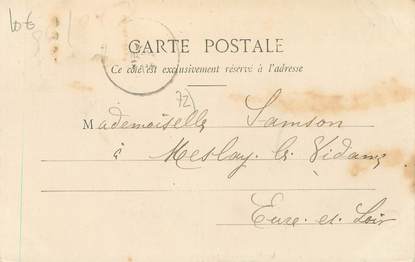 CARTE POSTALE
Ce côté est exclusivement réservé à l'adresse
72
Mademoiselle Samson
à Meslay le Vidame
Eure-et-Loir